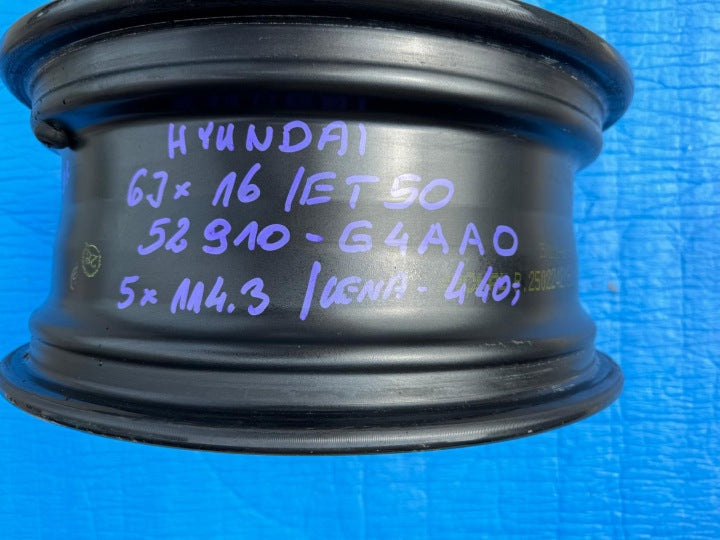 HYUNDAI
6J× 16 /ET 50
52910-G4AA0
5×114.3 /CENA- 440,-